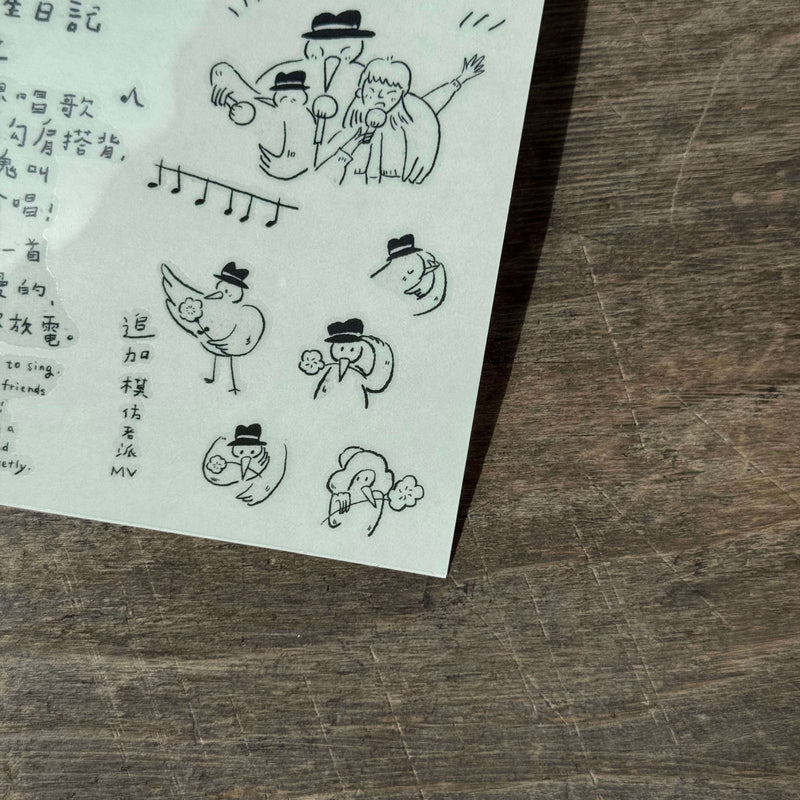 日記
唱歌
勾肩搭背,
鬼叫
唱!
一首
的,
放電。
to sing.
friends
a
追
加
模
仿
老
派
MV